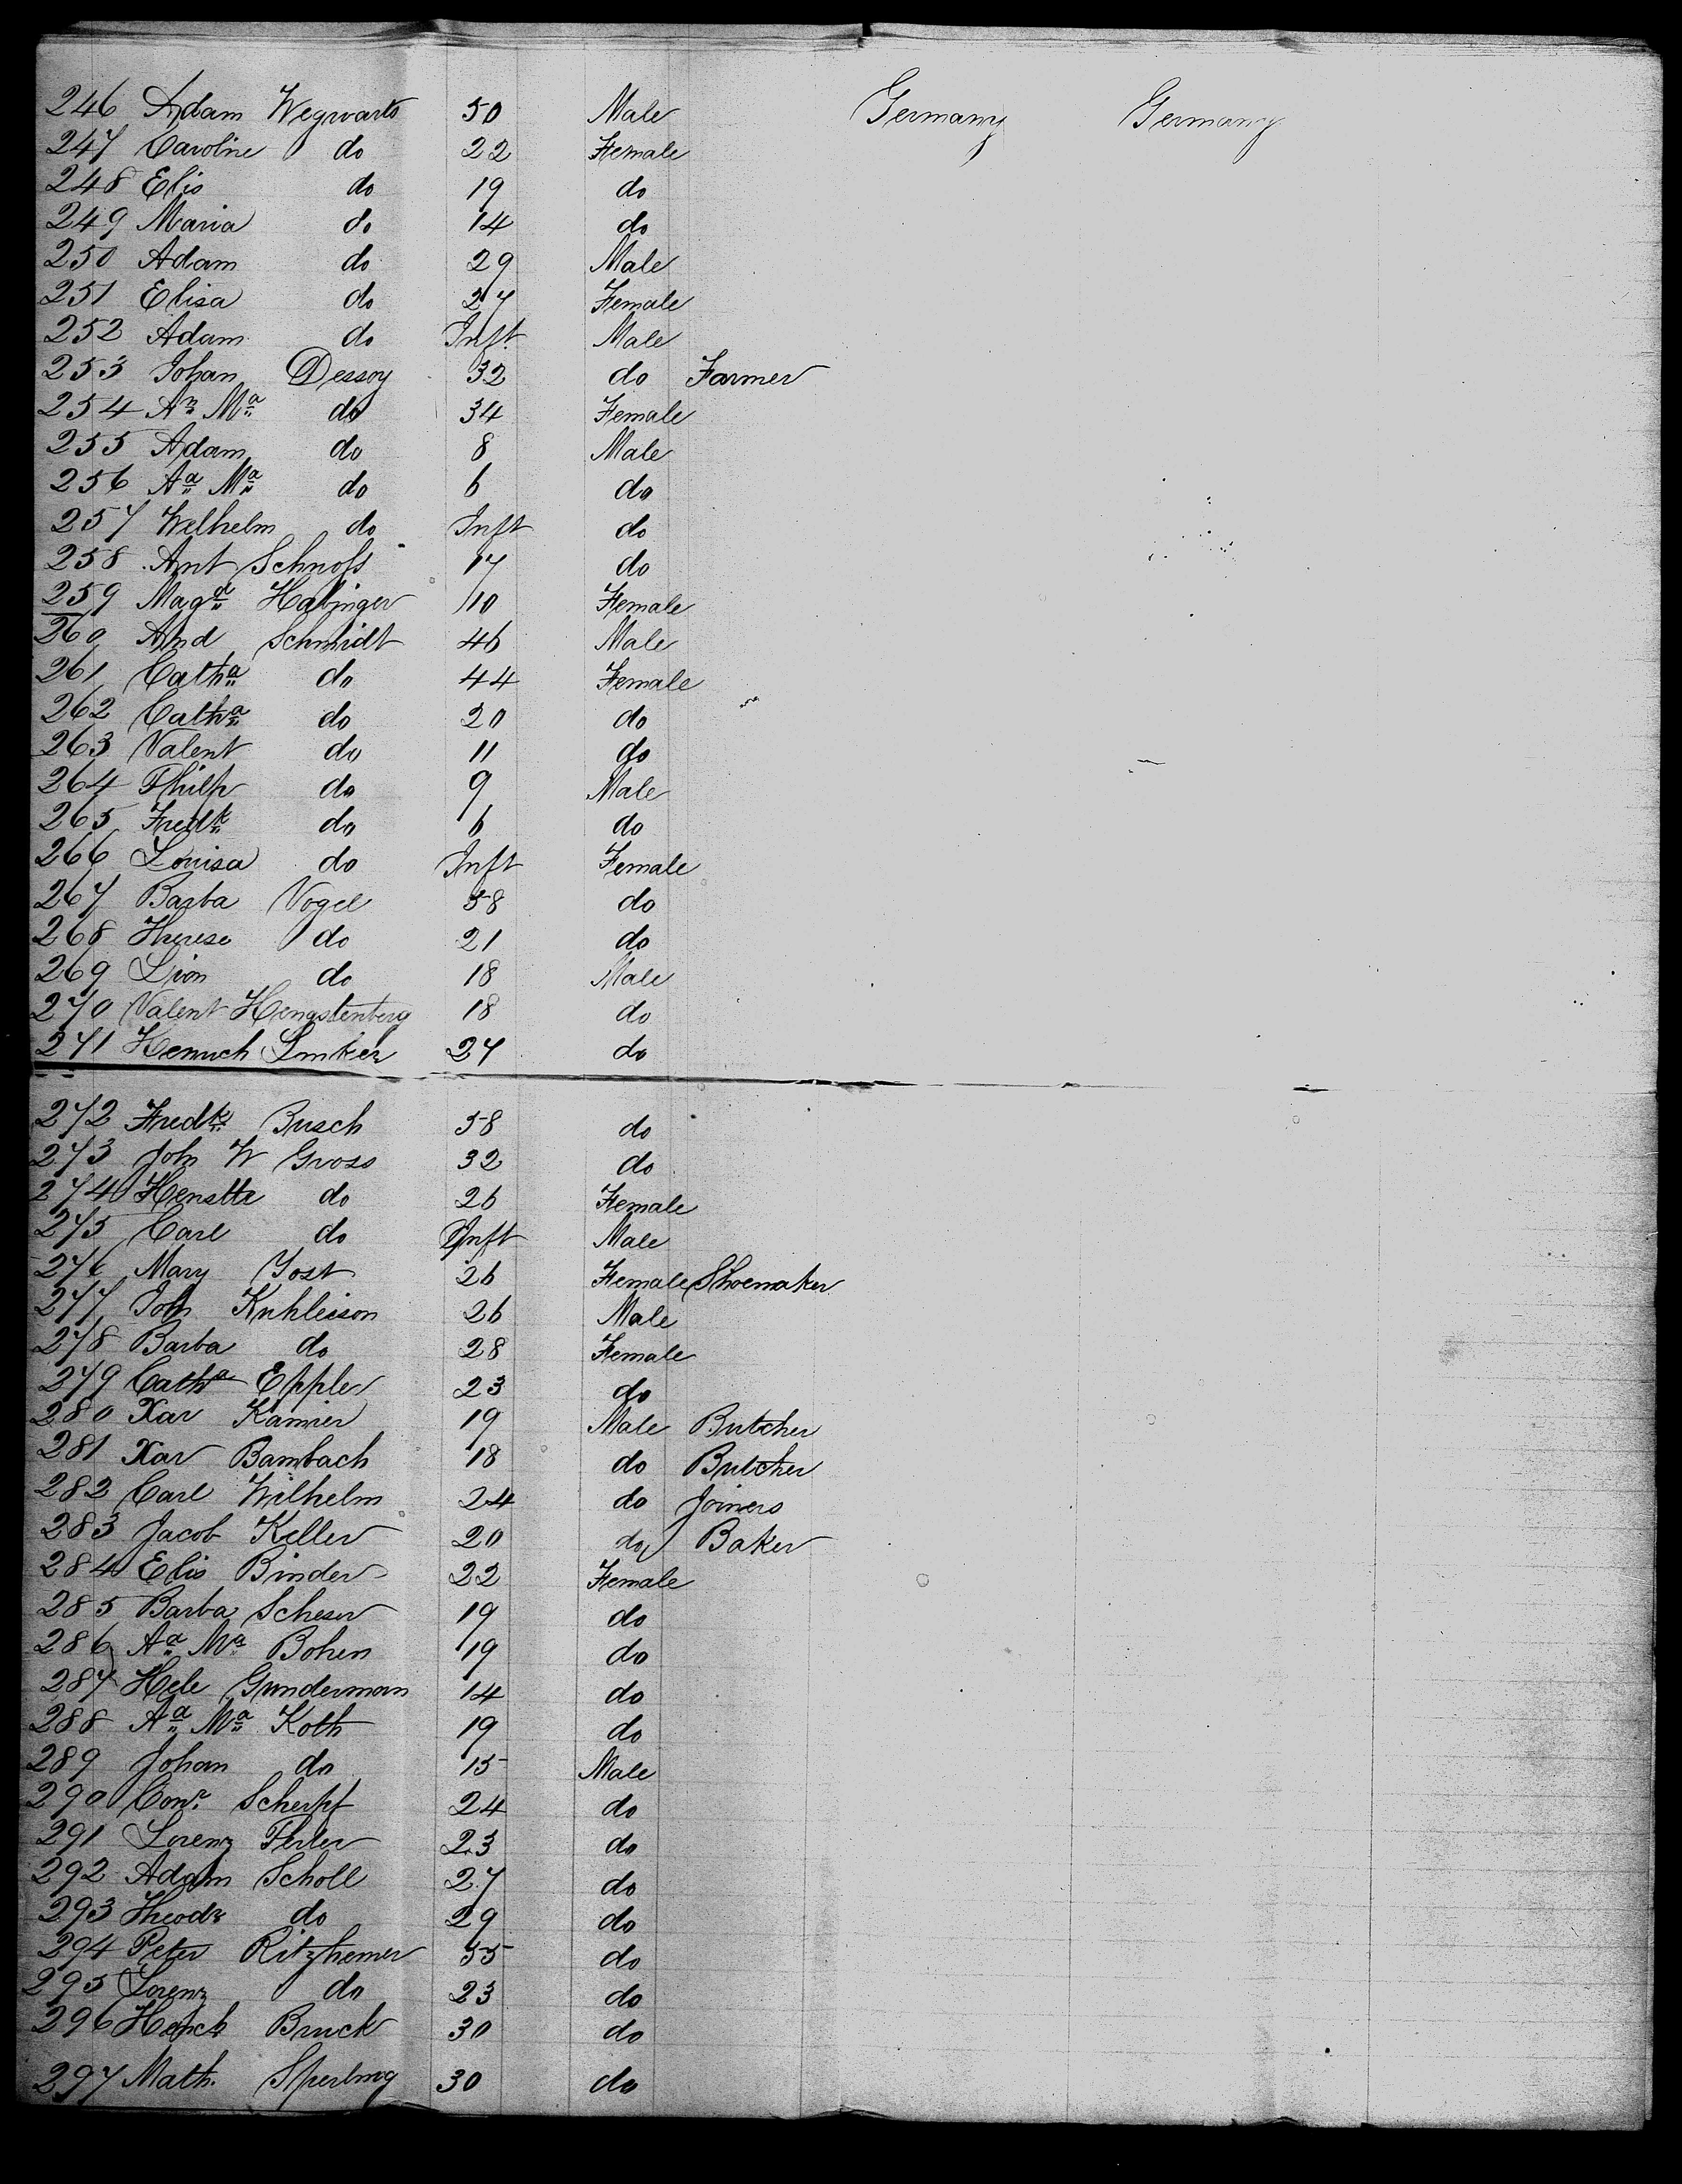 246 Adam Wegwarts 50 Male Germany Germany
247 Caroline do 22 Female
248 Elis do 19 do
249 Maria do 14 do
250 Adam do 29 Male
251 Elisa do 27 Female
252 Adam do Inft Male
253 Johan Dessoy 32 do Farmer
254 An Ma do 34 Female
255 Adam do 8 Male
256 Aa Ma do 6 do
257 Welhelm do Inft do
258 Ant Schnofs 17 do
259 Magda Habinger 10 Female
260 And Schmidt 46 Male
261 Catha do 44 Female
262 Catha do 20 do
263 Valent do 11 do
264 Philp do 9 Male
265 Fredk do 6 do
266 Louisa do Inft Female
267 Barba Vogel 58 do
268 Therese do 21 do
269 Lion do 18 Male
270 Valent Hengstenberg 18 do
271 Henrich Linker 27 do
272 Fredk Busch 58 do
273 Joh W Gross 32 do
274 Henstte do 26 Female
275 Carl do Inft Male
276 Mary Yost 26 Female Shoemaker
277 Joh Kuhleison 26 Male
278 Barba do 28 Female
279 Catha Eppler 23 do
280 Xav Kamier 19 Male Butcher
281 Xav Bambach 18 do Butcher
282 Carl Wilhelm 24 do Joiners
283 Jacob Keller 20 do Baker
284 Elis Binder 22 Female
285 Barba Scheser 19 do
286 Aa Ma Bohen 19 do
287 Hele Gunderman 14 do
288 Aa Ma Koth 19 do
289 Johan do 15 Male
290 Conr Scherpf 24 do
291 Lorenz Ferler 23 do
292 Adam Scholl 27 do
293 Theodr do 29 do
294 Peter Ritzhemer 55 do
295 Lorenz do 23 do
296 Hench Bruck 30 do
297 Math. Sperling 30 do